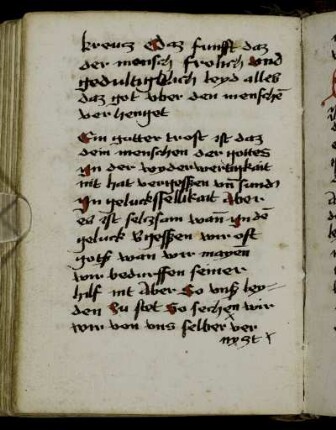 kreucz Daz funfft daz
der mensch frolich vnd
gedultigklich leyd alles
daz got vber den menschē
verhenget
Ein gutter trost ist daz
dem menschen der gottes
Jn der wyderwertigkait
nit hat vergessen vn̄
Jn gelucksellikait Aber
es ist selczsam wan̄ Jn dē
geluck vgessen wir oft
gotz wan wir mayen̄
wir bedurffen seiner
hilf nit Aber So vnß ley=
den zu stet So sechen wir
wir von vns selber ver